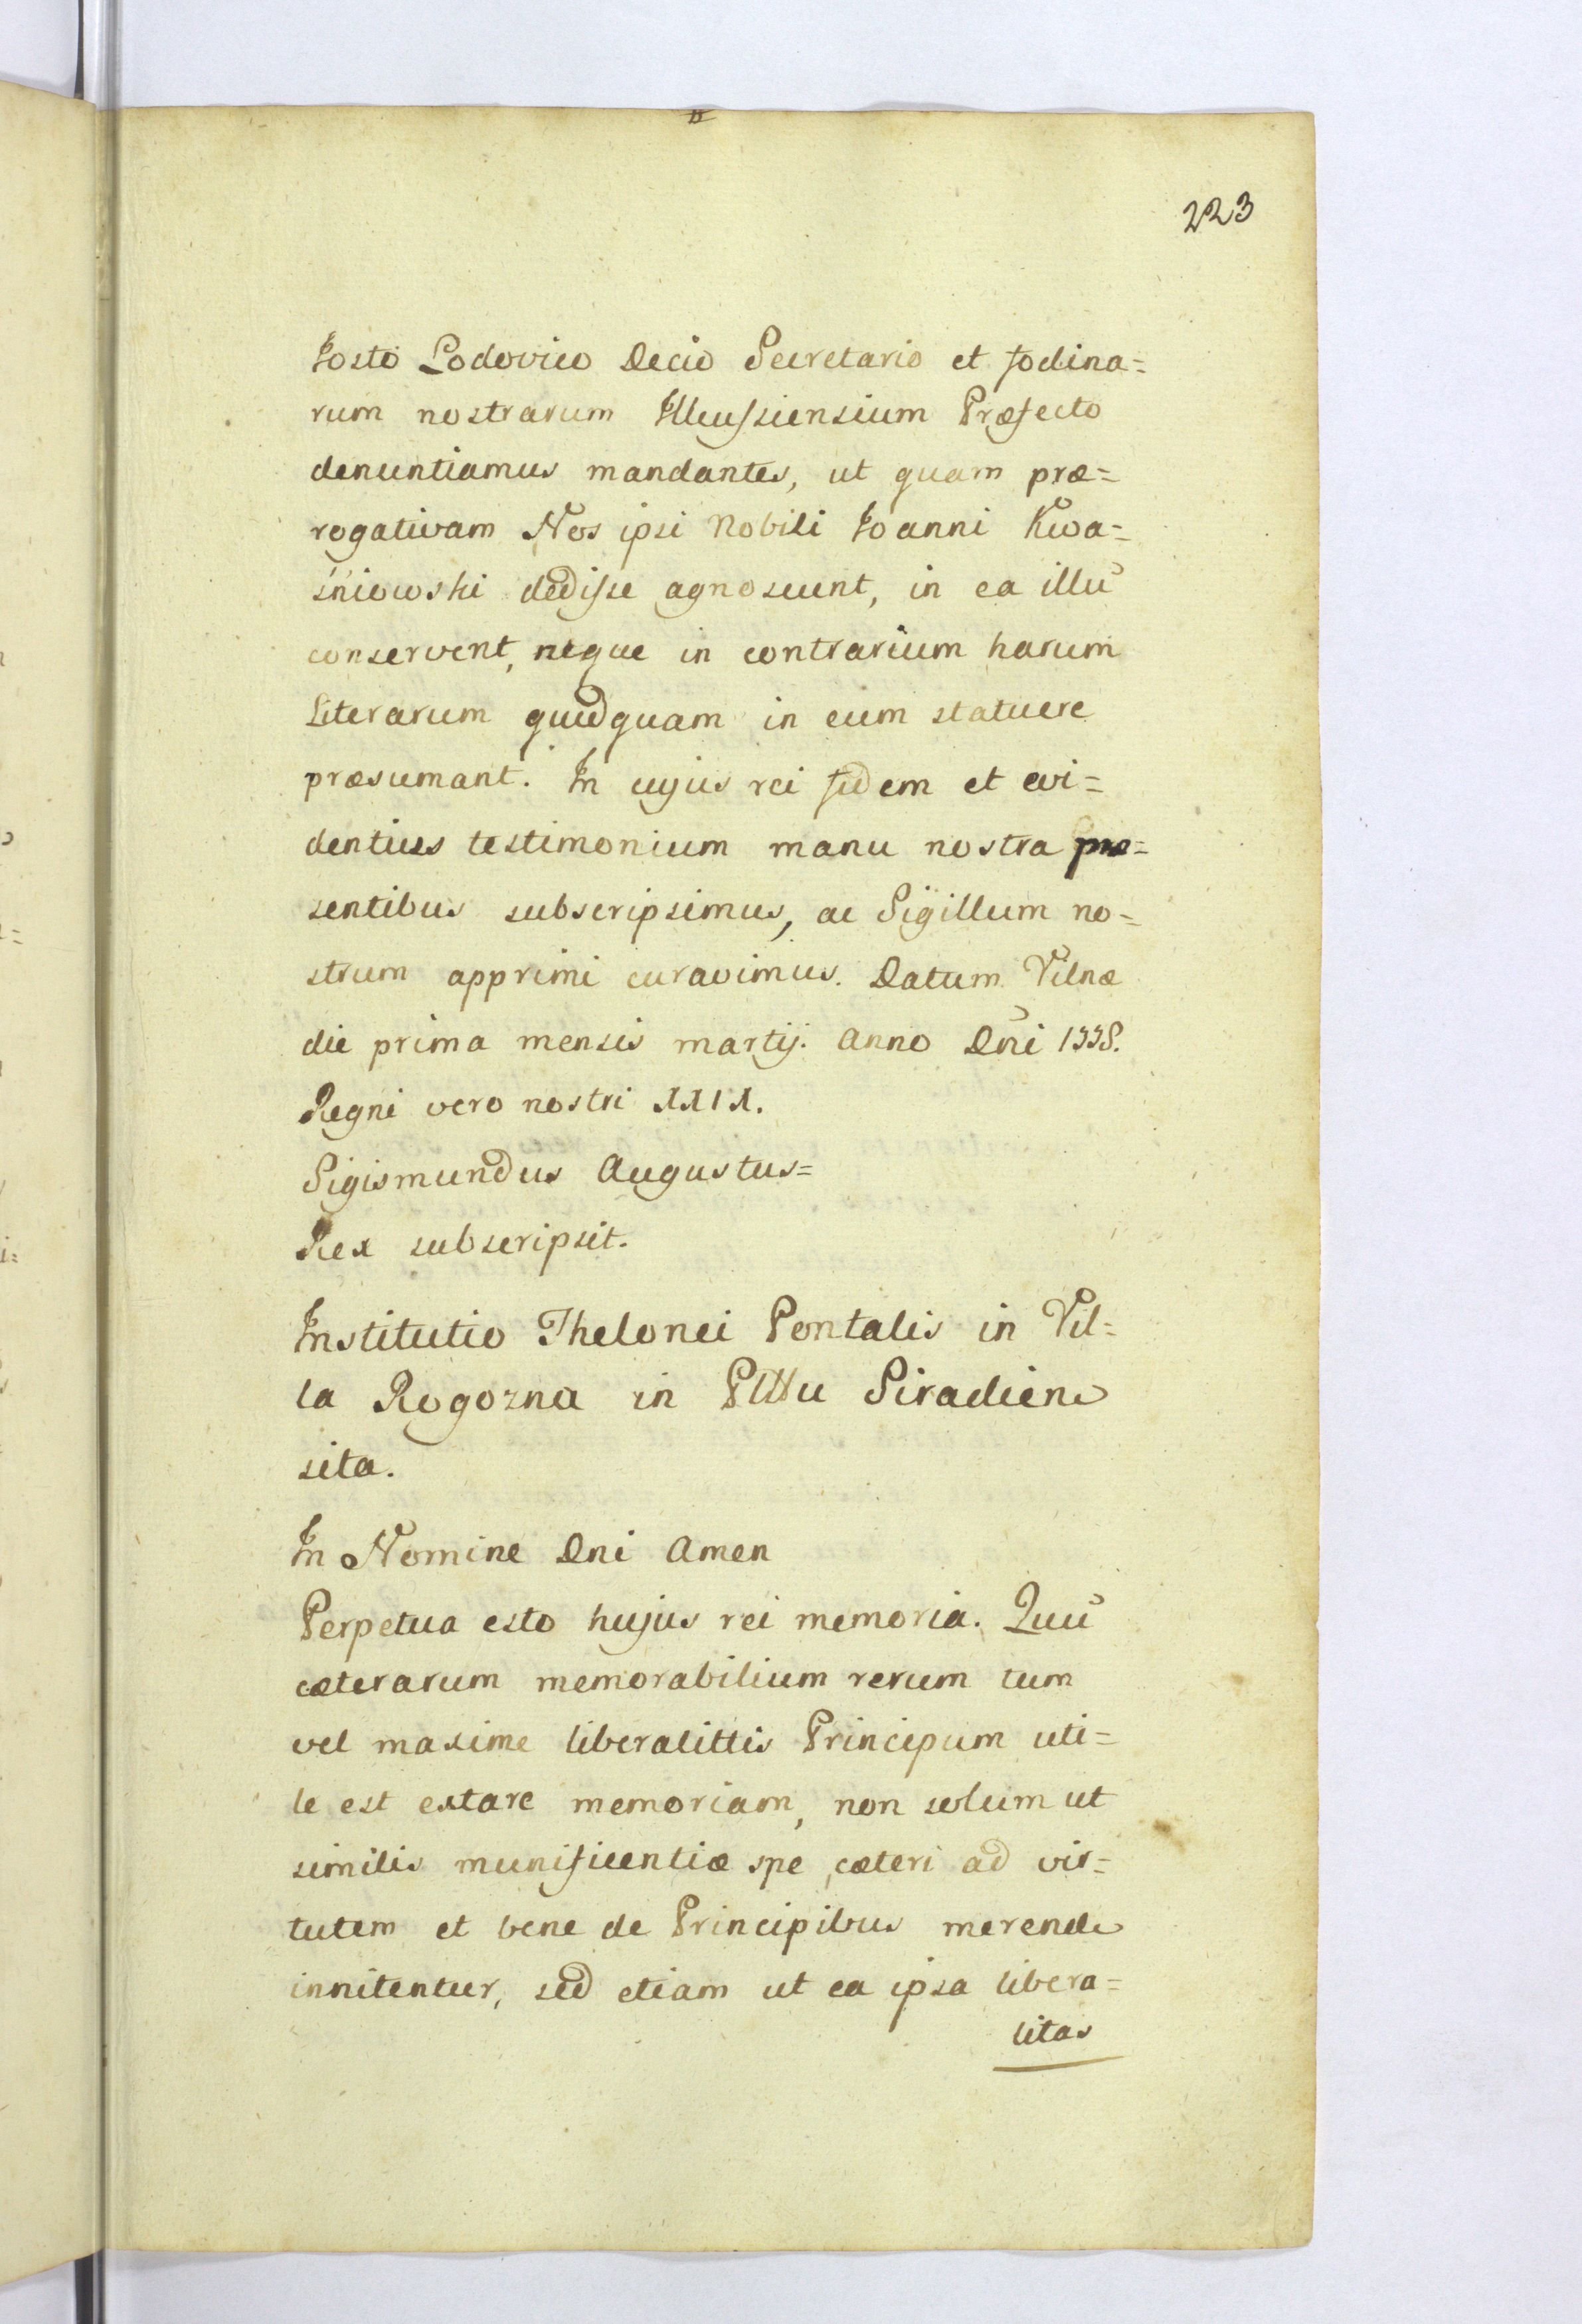 223
Iosto Lodovico Decio Secretario et fodina=
rum nostrarum Illcussiensium Præfecto
denuntiamus mandantes, ut quam præ=
rogativam Nos ipsi Nobili Ioanni Kwa=
śniowski dedisse agnoscunt, in ea illū
conservent, neque in contrarium harum
Literarum quidquam in eum statuere
præsumant. In cujus rei fidem et evi=
dentius testimonium manu nostra præ=
sentibus subscripsimus, ac Sigillum no=
strum apprimi curavimus. Datum Vilnæ
die prima mensis martij. Anno Dni 1558.
Regni vero nostri XXIX.
Sigismundus Augustus=
Rex subscripsit.
Institutio Thelonei Pontalis in Vil=
la Rogozna in Plttu Siradiens
sita.
In Nomine Dni Amen
Perpetua esto hujus rei memoria. Quū
cæterarum memorabilium rerum tum
vel maxime liberalittis Principum uti=
le est extare memoriam, non solum ut
similis munificentiæ spe, cæteri ad vir=
tutem et bene de Principibus merende
innitentur, sed etiam ut ea ipsa libera=
litas